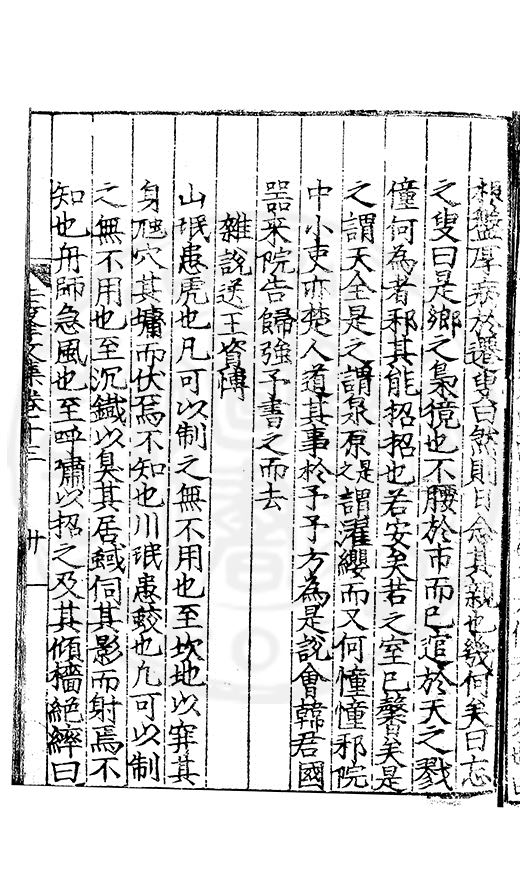 盤厚病於遷叟曰然則日念其親也幾何矣曰忘
之叟曰是鄉之梟獍也不腰於市而已逭於天之戮
僮何為者邪其能招招也若安矣若之室已馨矣是
之謂天全是之謂泉原之是謂濯纓而又何憧憧邪院
中小吏亦楚人道其事於予予方為是說會韓君國
器來院告歸強予書之而去
雜說送王資博
山氓患虎也凡可以制之無不用也至坎地以穽其
身虺穴其墉而伏焉不知也川氓患蛟也凡可以制
之無不用也至沉鐵以臭其居蜮伺其影而射焉不
知也舟師急風也至呼嘯以招之及其傾檣絕繂曰
文集卷十三
廿